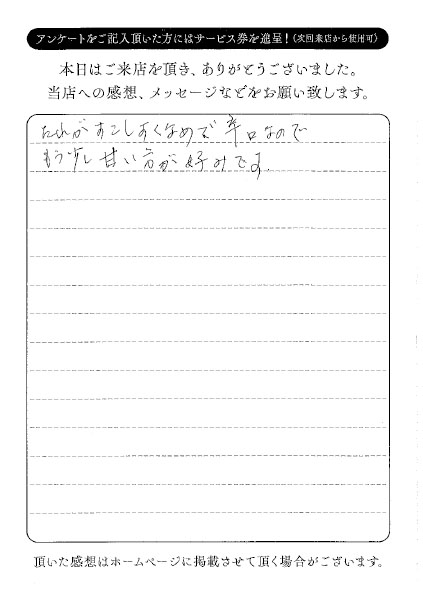 アンケートをご記入頂いた方にはサービス券を進呈！（次回来店から使用可）
本日はご来店を頂き、ありがとうございました。
当店への感想、メッセージなどをお願い致します。
たれがすこしすくなめで辛口なので
もう少し甘い方が好みです。
頂いた感想はホームページに掲載させて頂く場合がございます。